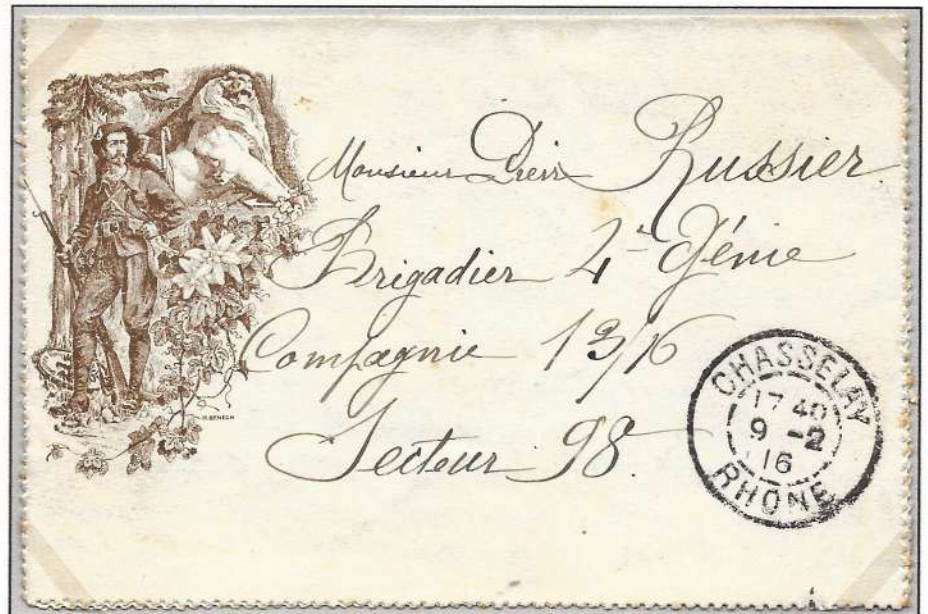 Monsieur Pierre Russier
Brigadier 4e Génie
Compagnie 13/16
Secteur 98.
H. BENECH
CHASSELAY
17 40
9 -2
16
RHONE